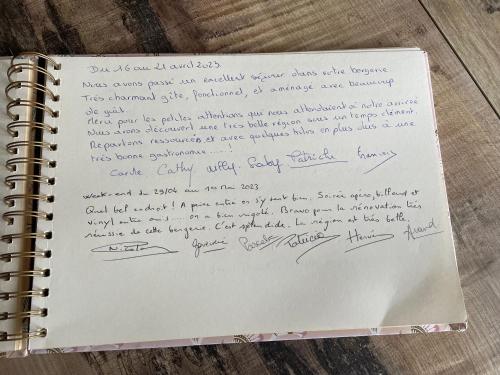 Du 16 au 21 avril 2023
Nous avons passé un excellent séjour dans votre bergerie
Très charmant gîte, fonctionnel, et aménagé avec beaucoup
de goût.
Merci pour les petites attentions qui nous attendaient à notre arrivée
Nous avons découvert une très belle région sous un temps clément.
Repartons ressourcés et avec quelques kilos en plus dus à une
très bonne gastronomie....!
Carole Cathy Gaby Patrick
week-end du 29/04 au 1er Mai 2023
Quel bel endroit! A peine entré on s'y sent bien. Soirée apéro, billard et
vinyl entre amis.... on a bien rigolé. Bravo pour la rénovation très
réussie de cette bergerie. C'est splendide. La région est très belle.
Patricia Hervé